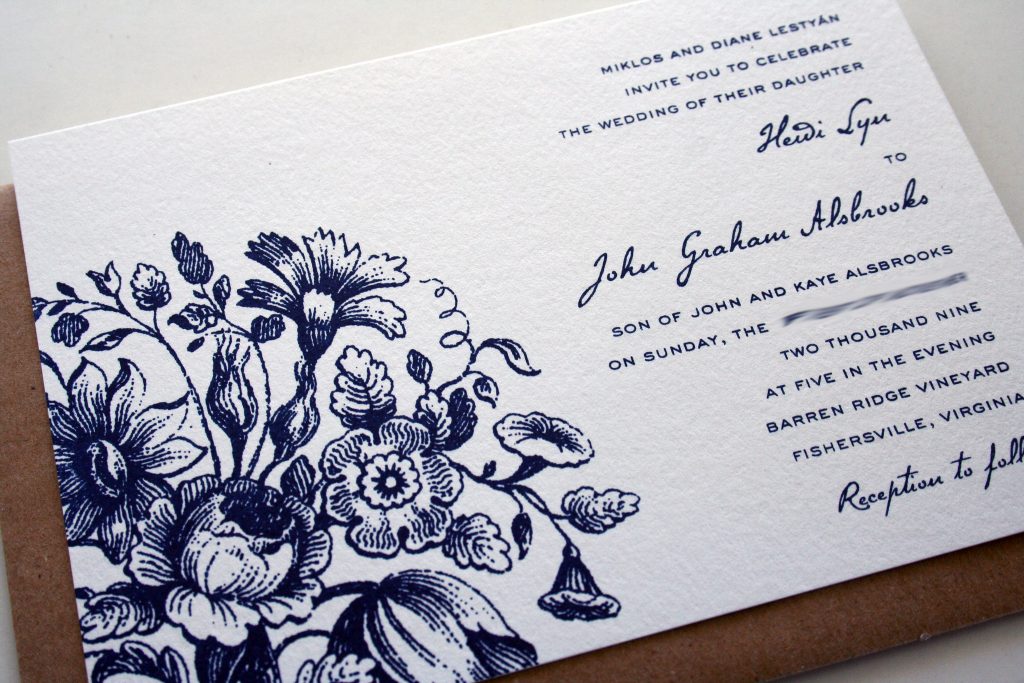 MIKLOS AND DIANE LESTYÁN
INVITE YOU TO CELEBRATE
THE WEDDING OF THEIR DAUGHTER
Heidi Lyn
TO
John Graham Alsbrooks
SON OF JOHN AND KAYE ALSBROOKS
ON SUNDAY, THE
TWO THOUSAND NINE
AT FIVE IN THE EVENING
BARREN RIDGE VINEYARD
FISHERSVILLE, VIRGINIA
Reception to foll